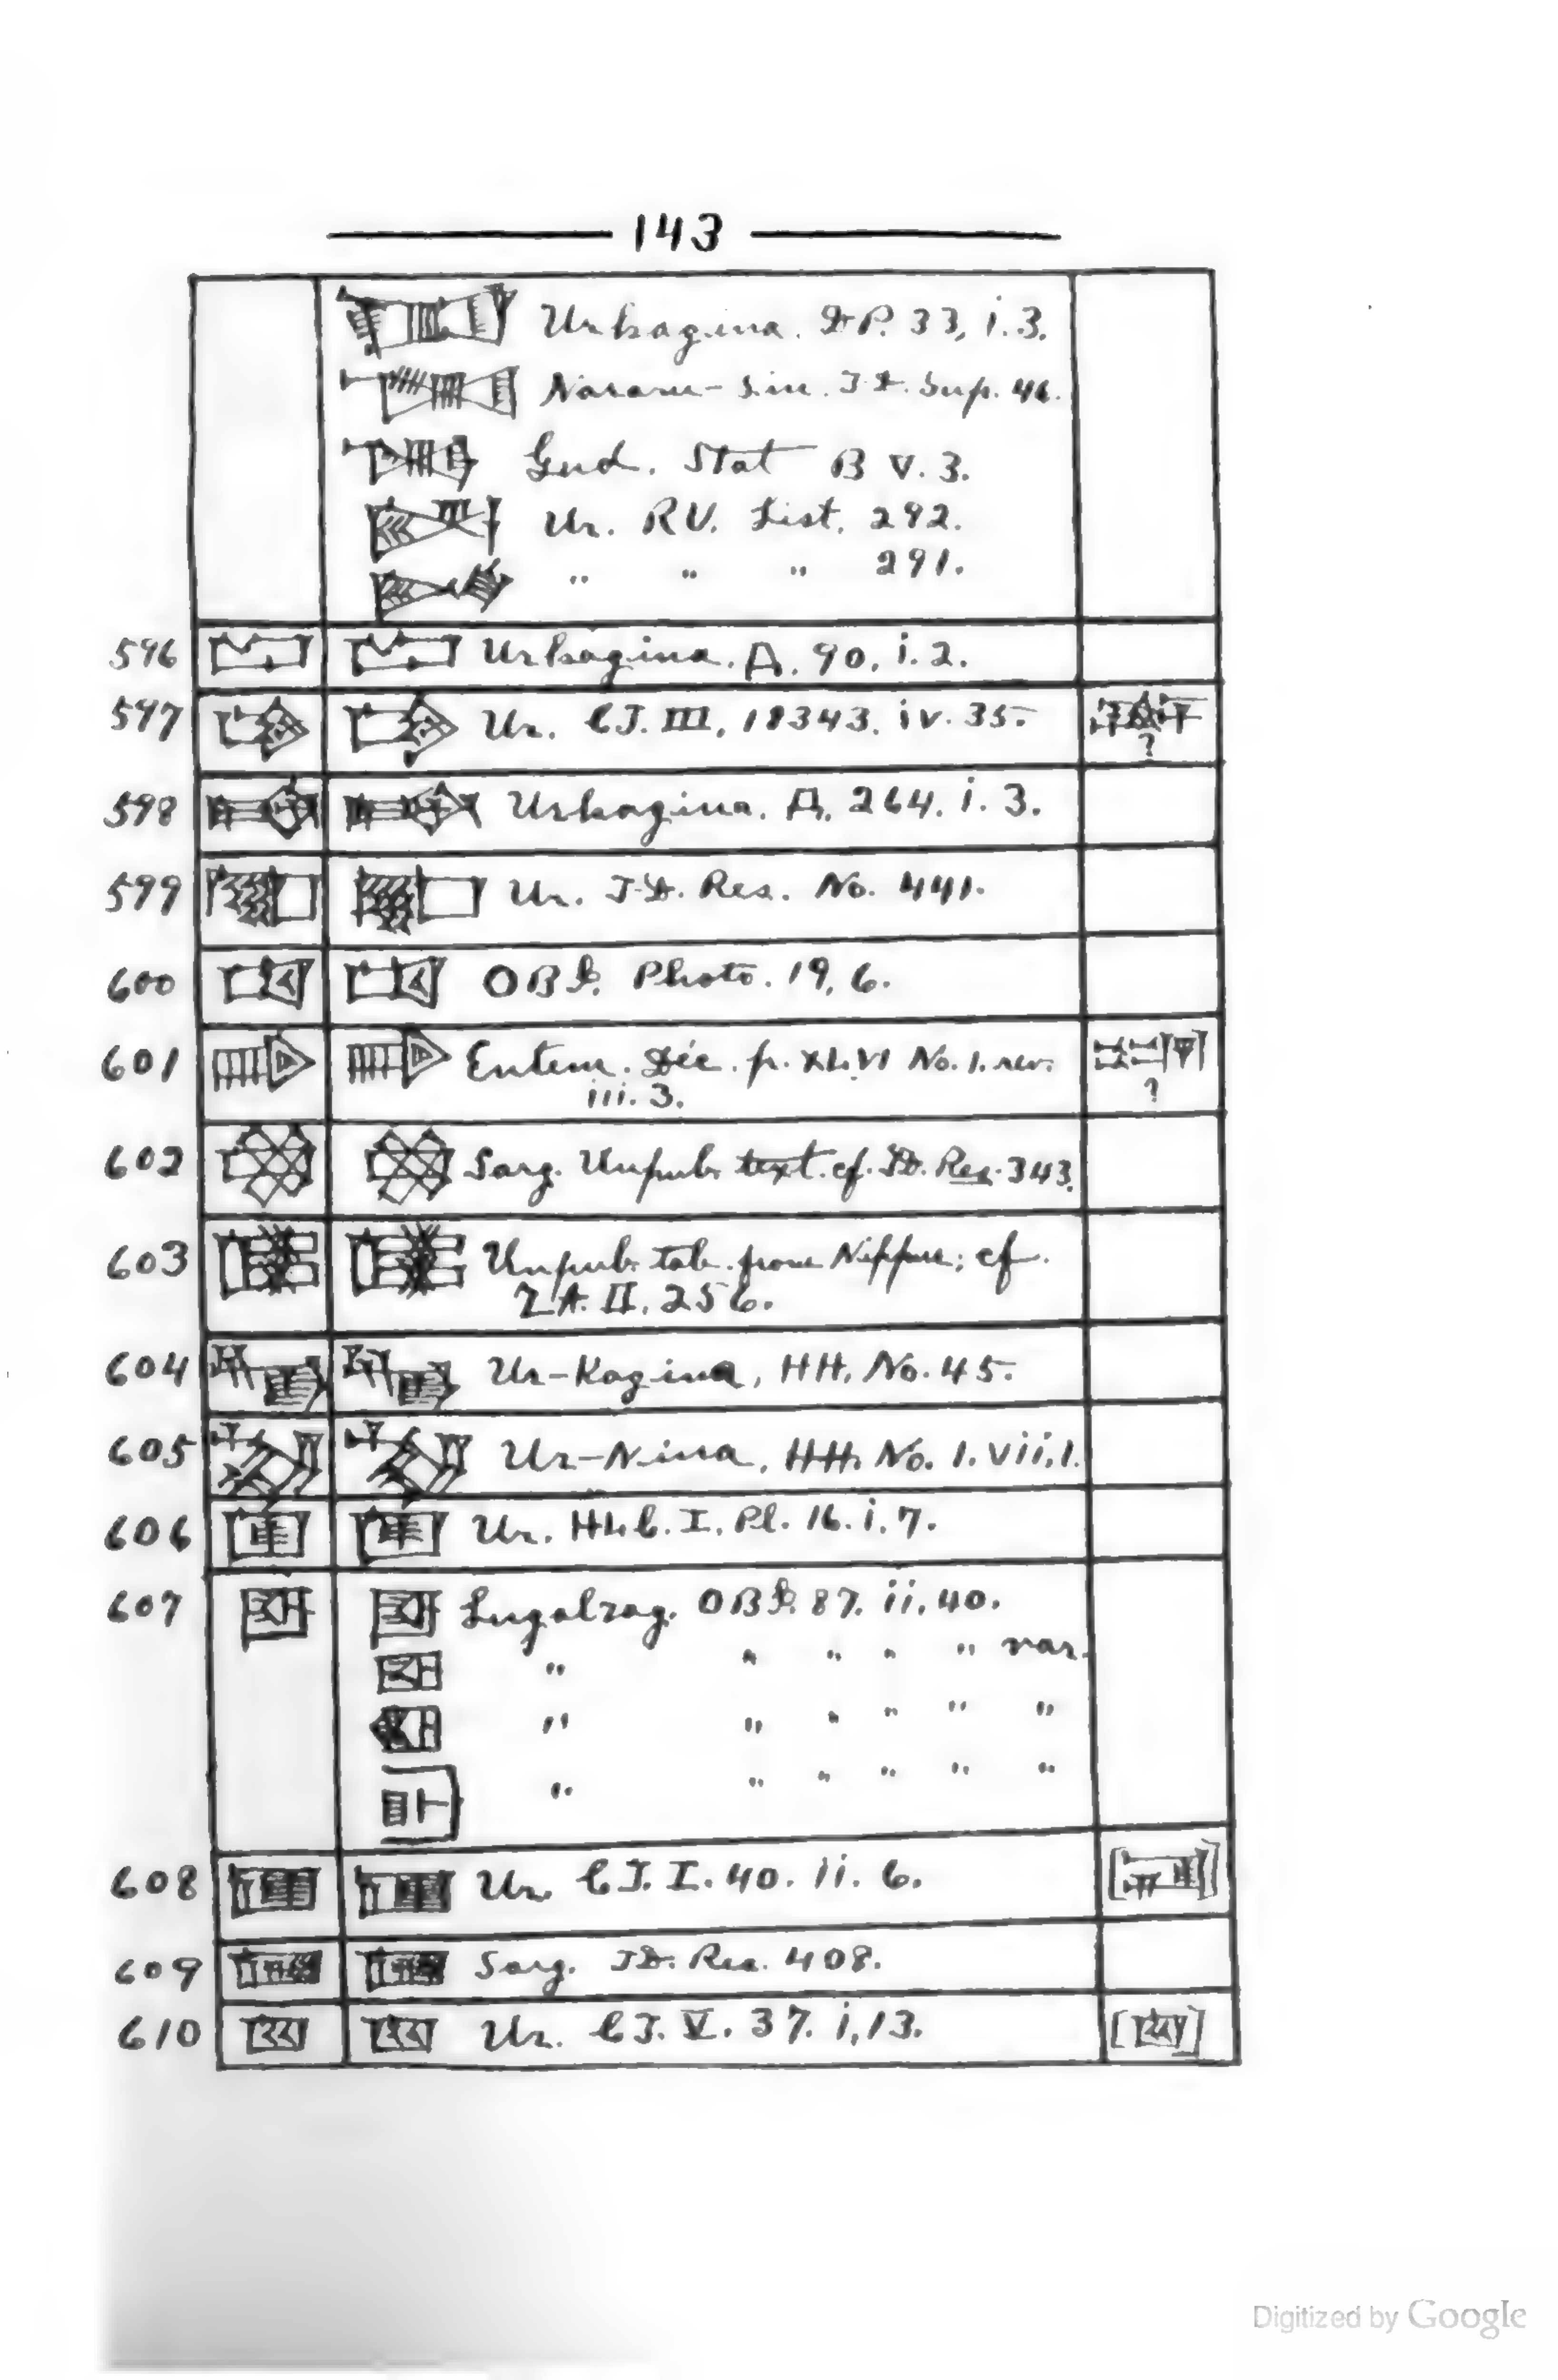 143
Urkagina. DP. 33, i. 3.
Naram-Sin. TD. Sup. 44.
Gud. Stat B V. 3.
Ur. RV. List. 292.
" " " 291.
596 Urkagina. Д. 90. i. 2.
597 Ur. CT. III, 18343. iv. 35. ?
598 Urkagina. Д. 264. i. 3.
599 Ur. TD. Rea. No. 441.
600 OBI. Photo. 19, 6.
601 Entem. Déc. p. XLVI No. 1. rev. ?
iii. 3.
602 Sarg. Unpub. text. cf. TD. Rea. 343.
603 Unpub. tab. from Nippur; cf.
ZA. II. 256.
604 Ur-Kagina, HH. No. 45.
605 Ur-Nina, HH. No. 1. vii, 1.
606 Ur. HLC. I. Pl. 16. i. 7.
607 Lugalzag. OBI. 87. ii. 40.
" " " " " var.
" " " " " "
" " " " " "
608 Ur. CT. I. 40. ii. 6. [ ]
609 Sarg. TD. Rea. 408.
610 Ur. CT. V. 37. i, 13. [ ]
Digitized by Google